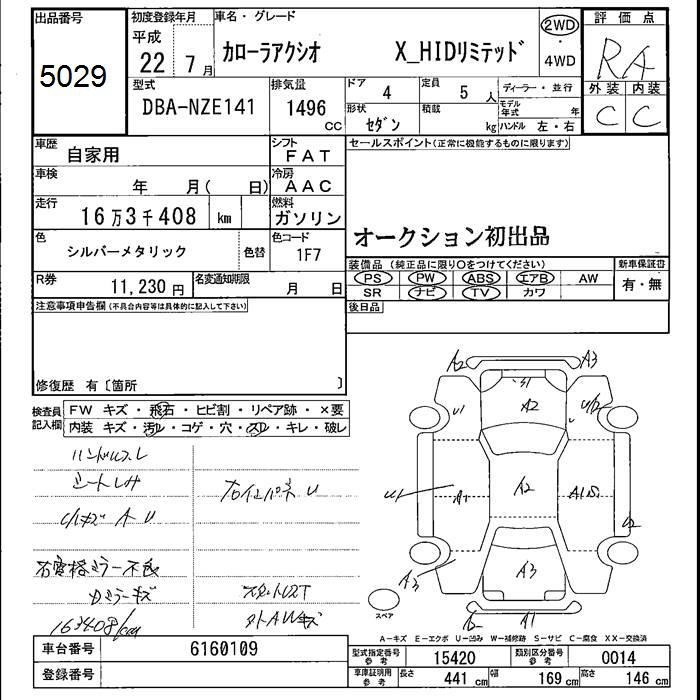 出品番号 初度登録年月 車名・グレード 2WD 評価点
5029 平成 22 7月 カローラアクシオ X_HIDリミテッド ・ 4WD RA
型式 排気量 ドア 4 定員 5人 ディーラー・並行 外装 内装
DBA-NZE141 1496 cc 形状 セダン 積載 kg モデル年式 年 C C
ハンドル 左・右
車歴 自家用 シフト FAT セールスポイント(正常に機能するものに限ります)
車検 年 月( 日) 冷房 AAC
走行 16万3千408 km 燃料 ガソリン
オークション初出品
色 シルバーメタリック 色替 色コード 1F7
装備品 (純正品に限り○をつけてください) 新車保証書
R券 11,230円 名変通知期限 月 日 PS PW ABS エアB AW 有・無
SR ナビ TV カワ
注意事項申告欄(不具合内容等は具体的に記入して下さい) 後日品
修復歴 有〔箇所 〕
検査員記入欄 FW キズ・飛石・ヒビ割・リペア跡・×要
内装 キズ・汚レ・コゲ・穴・スレ・キレ・破レ
ハンドルスレ
A2 A3
S1
U1 A2 U2
U1 A1 A2 A1
U2
A3 A3
A1
163408km
スペア
A-キズ E-エクボ U-凹み W-補修跡 S-サビ C-腐食 XX-交換済
車台番号 6160109
型式指定番号 参考 15420 類別区分番号 参考 0014
登録番号
車庫証明用 参考 長さ 441cm 幅 169cm 高さ 146cm